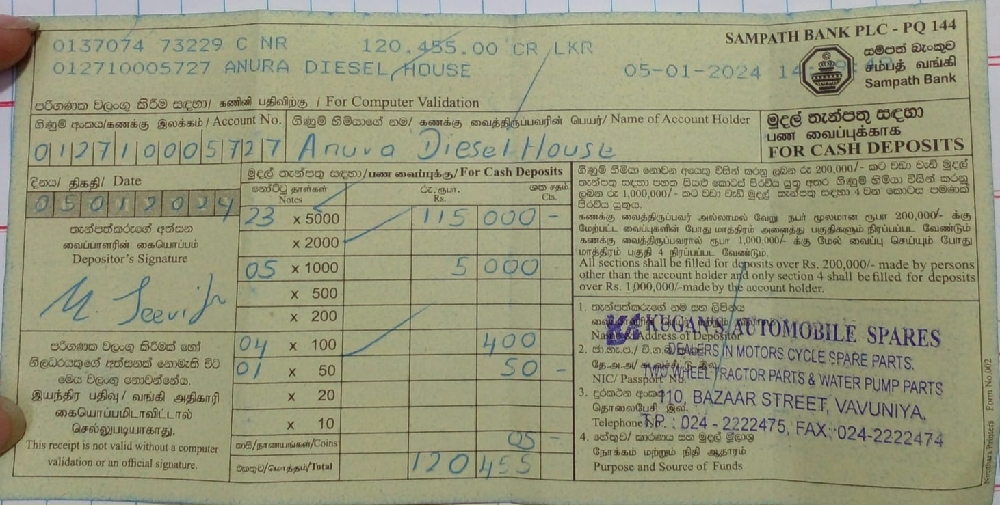 0137074 73229 C NR 120,455.00 CR LKR
012710005727 ANURA DIESEL HOUSE 05-01-2024 14
SAMPATH BANK PLC - PQ 144
සම්පත් බැංකුව
சம்பத் வங்கி
Sampath Bank
පරිගණක වලංගු කිරීම සඳහා/ கணினி பதிவிற்கு / For Computer Validation
ගිණුම් අංකය/கணக்கு இலக்கம் / Account No.
ගිණුම් හිමියාගේ නම/ கணக்கு வைத்திருப்பவரின் பெயர்/ Name of Account Holder
012710005727 Anura Diesel House
මුදල් තැන්පතු සඳහා
பண வைப்புக்காக
FOR CASH DEPOSITS
දිනය/ திகதி/ Date
05012024
තැන්පත්කරුගේ අත්සන
வைப்பாளரின் கையொப்பம்
Depositor's Signature
පරිගණක වලංගු කිරීමක් හෝ
නිලධරයකුගේ අත්සනක් නොමැති විට
මෙය වලංගු නොවන්නේය.
இயந்திர பதிவு/ வங்கி அதிகாரி
கையொப்பமிடாவிட்டால்
செல்லுபடியாகாது.
This receipt is not valid without a computer
validation or an official signature.
මුදල් තැන්පතු සඳහා/பண வைப்புக்கு/For Cash Deposits
නෝට්ටු/தாள்கள் රු./ரூபா. ශත/சதம்
Notes Rs. Cts.
23 x 5000 115 000 -
x 2000
05 x 1000 5 000 -
x 500
x 200
04 x 100 400
01 x 50 50 -
x 20
x 10
කාසි/நாணயங்கள்/Coins 05 -
එකතුව/மொத்தம்/Total 120 455 -
ගිණුම් හිමියා නොවන අයෙකු විසින් කරනු ලබන රු 200,000/- කට වඩා වැඩි මුදල්
තැන්පතු සඳහා පහත සියළු කොටස් පිරවිය යුතු අතර ගිණුම් හිමියා විසින් කරනු
ලබන රු 1,000,000/- කට වඩා වැඩි මුදල් තැන්පතු සඳහා 4 වන කොටස පමණක්
පිරවිය යුතුය.
கணக்கு வைத்திருப்பவர் அல்லாமல் வேறு நபர் மூலமான ரூபா 200,000/- க்கு
மேற்பட்ட வைப்புகளின் போது மாத்திரம் அனைத்து பகுதிகளும் நிரப்பப்பட வேண்டும்
கணக்கு வைத்திருப்பவரால் ரூபா 1,000,000/- க்கு மேல் வைப்பு செய்யும் போது
மாத்திரம் பகுதி 4 நிரப்பப்பட வேண்டும்.
All sections shall be filled for deposits over Rs. 200,000/- made by persons
other than the account holder and only section 4 shall be filled for deposits
over Rs. 1,000,000/-made by the account holder.
1. තැන්පත්කරුගේ නම සහ ලිපිනය
Name Address of Depositor
2.
NIC/ Passport No.
3. දුරකථන අංකය
தொலைபேசி இல.
Telephone No.
4. හේතුව/ කාරණය සහ මුදල් මූලාශ්‍ර
நோக்கம் மற்றும் நிதி ஆதாரம்
Purpose and Source of Funds
KUGAN'S AUTOMOBILE SPARES
DEALERS IN MOTORS CYCLE SPARE PARTS.
TWO WHEEL TRACTOR PARTS & WATER PUMP PARTS
110, BAZAAR STREET, VAVUNIYA.
T.P. : 024 - 2222475, FAX: 024-2222474
Form No.002